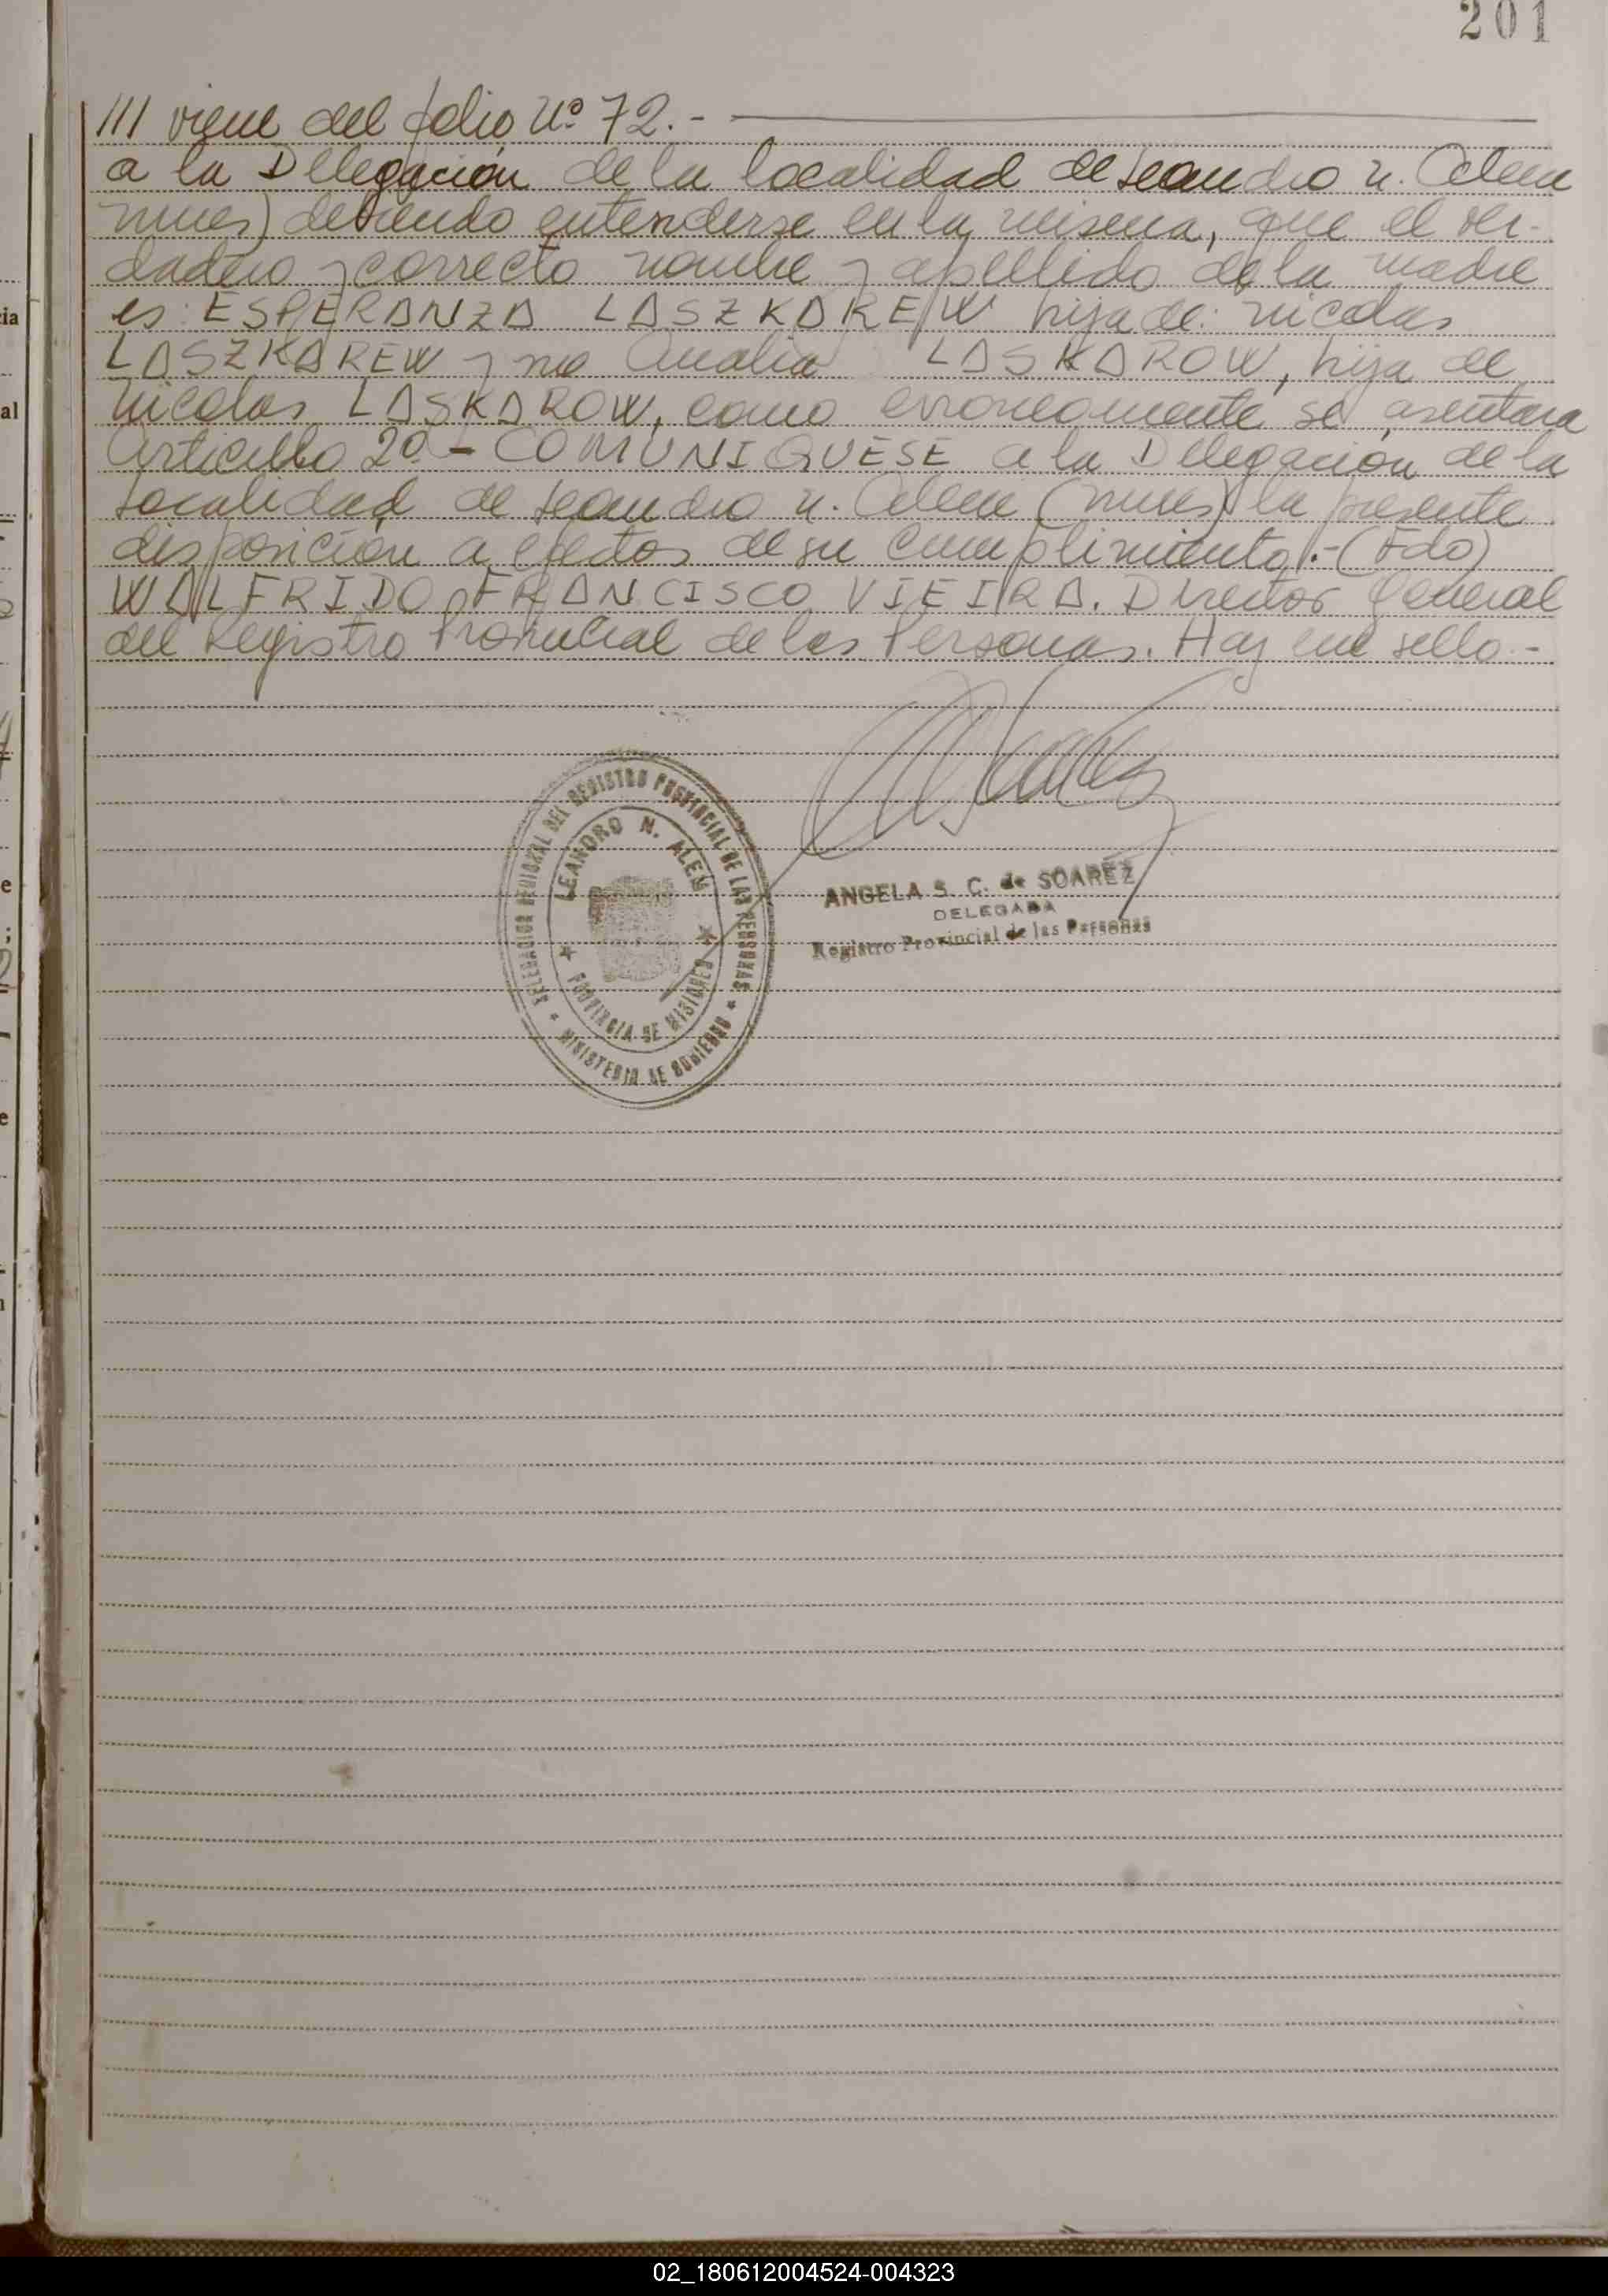 201
/// viene del folio Nº 72.-
a la Delegación de la localidad de Leandro N. Alem
mnes) debiendo entenderse en la misma, que el ver-
dadero y correcto nombre y apellido de la madre
es: ESPERANZA LASZKAREW hija de: Nicolas
LASZKAREW y no Analia LASKAROW, hija de
Nicolas LASKAROW, como erroneamente se asentara
Articulo 2º.- COMUNIQUESE a la Delegación de la
Localidad de Leandro N. Alem (mnes) la presente
disposición a efectos de su cumplimiento.-(Fdo)
WALFRIDO FRANCISCO VIEIRA. Director General
del Registro Provincial de las Personas. Hay un sello.-
DELEGACION REGIONAL DEL REGISTRO PROVINCIAL DE LAS PERSONAS
LEANDRO N. ALEM
PROVINCIA DE MISIONES
MINISTERIO DE GOBIERNO
ANGELA S. C. de SOAREZ
DELEGADA
Registro Provincial de las Personas
ia
al
e
;
e
02_180612004524-004323